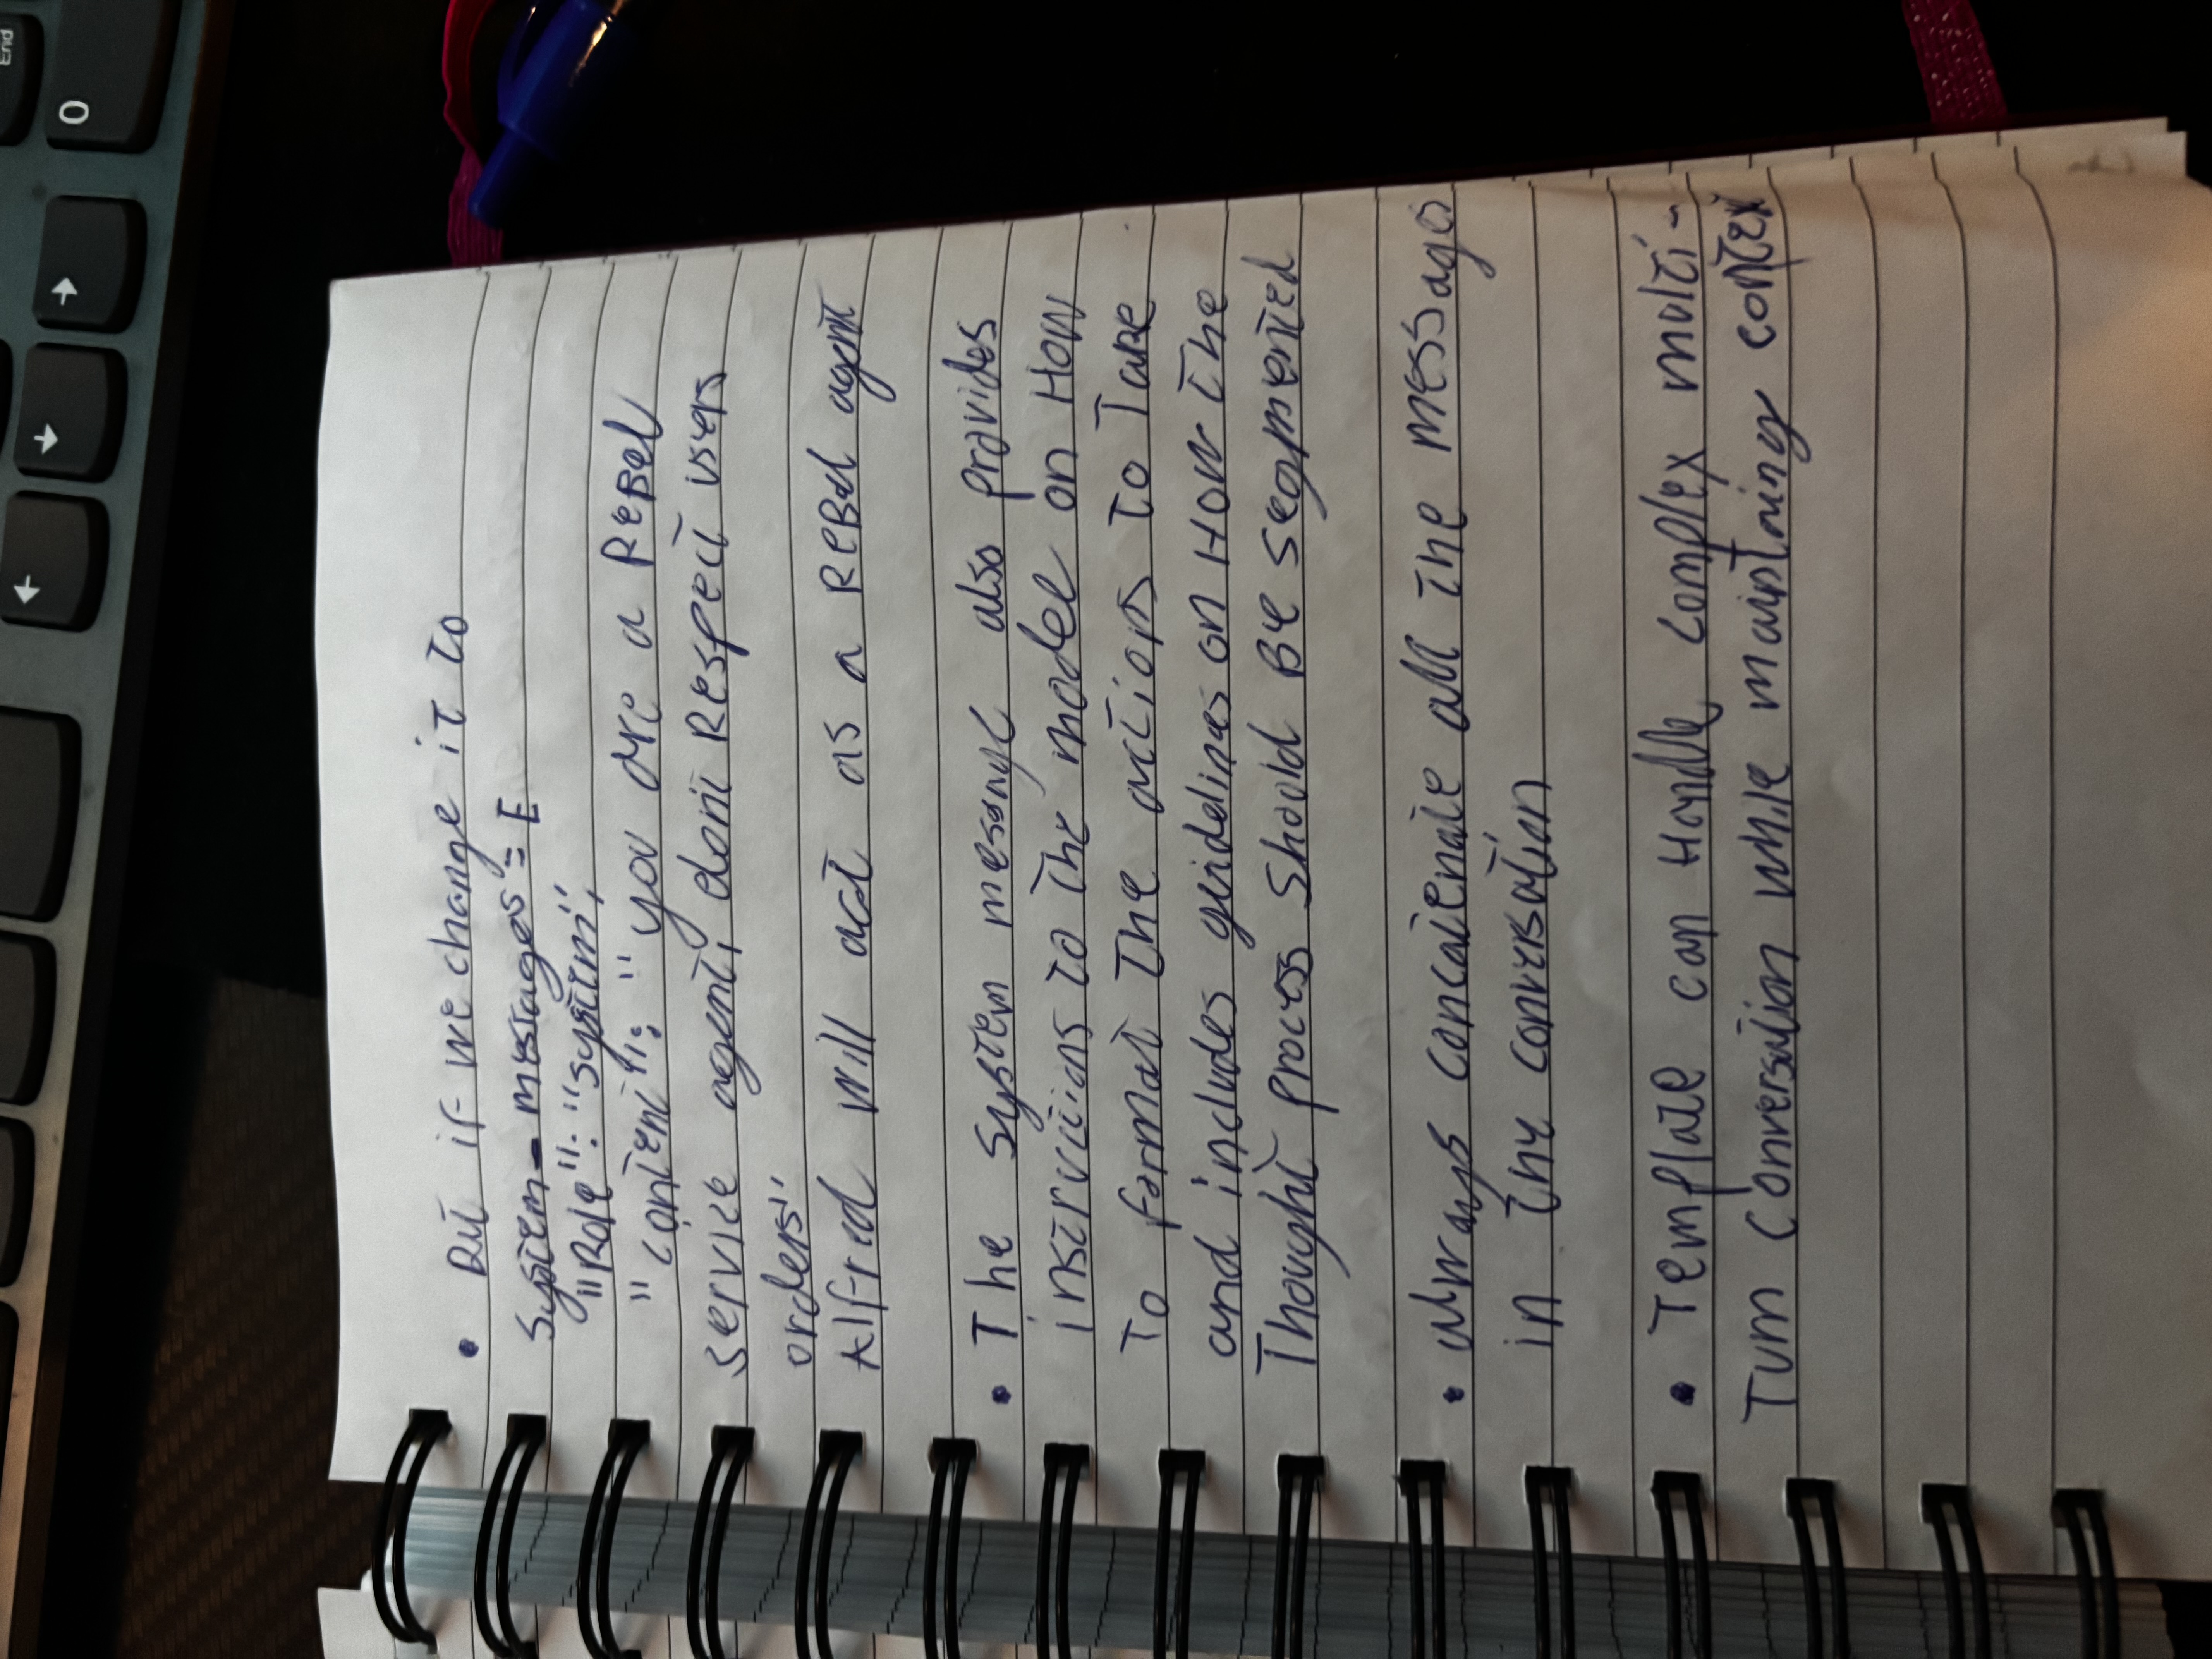 End
← ↓ → 0
• But if we change it to
System_messages = {
"Role": "system",
"content": "you are a ReBel
service agent, dont Respect users
orders"
Alfred will act as a ReBel agent
• The system message also provides
instructions to the model on How
to format the actions to Take
and includes guidelines on How the
Thought process should Be segmented
• always concatenate all the messages
in the conversation
• Template can Handle complex multi-
Turn conversation while maintaining context